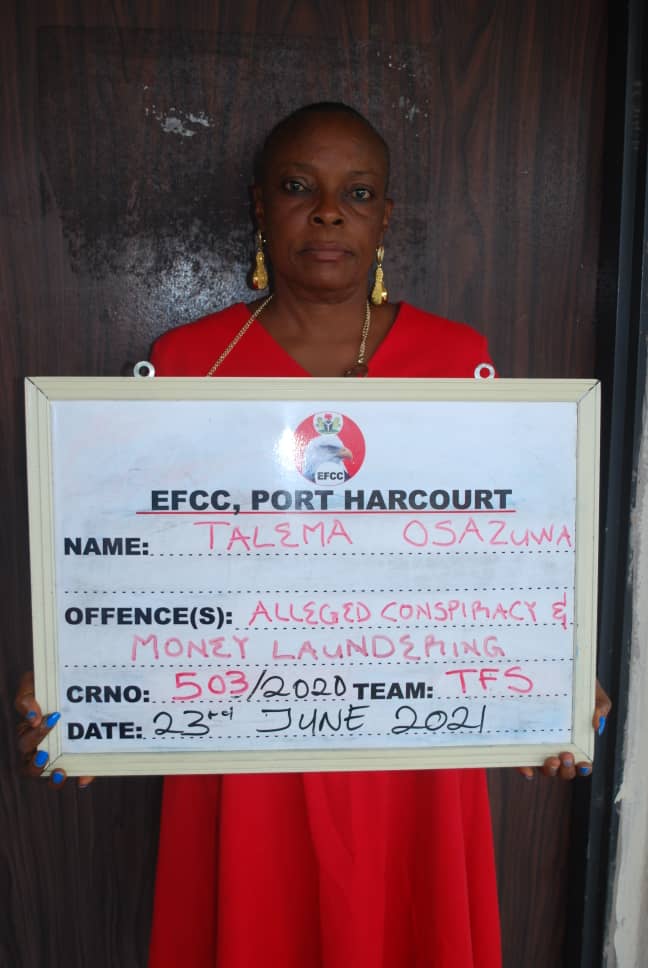 EFCC
EFCC, PORT HARCOURT
NAME: TALEMA OSAZUWA
OFFENCE(S): ALLEGED CONSPIRACY &
MONEY LAUNDERING
CRNO: 503/2020 TEAM: TFS
DATE: 23rd JUNE 2021